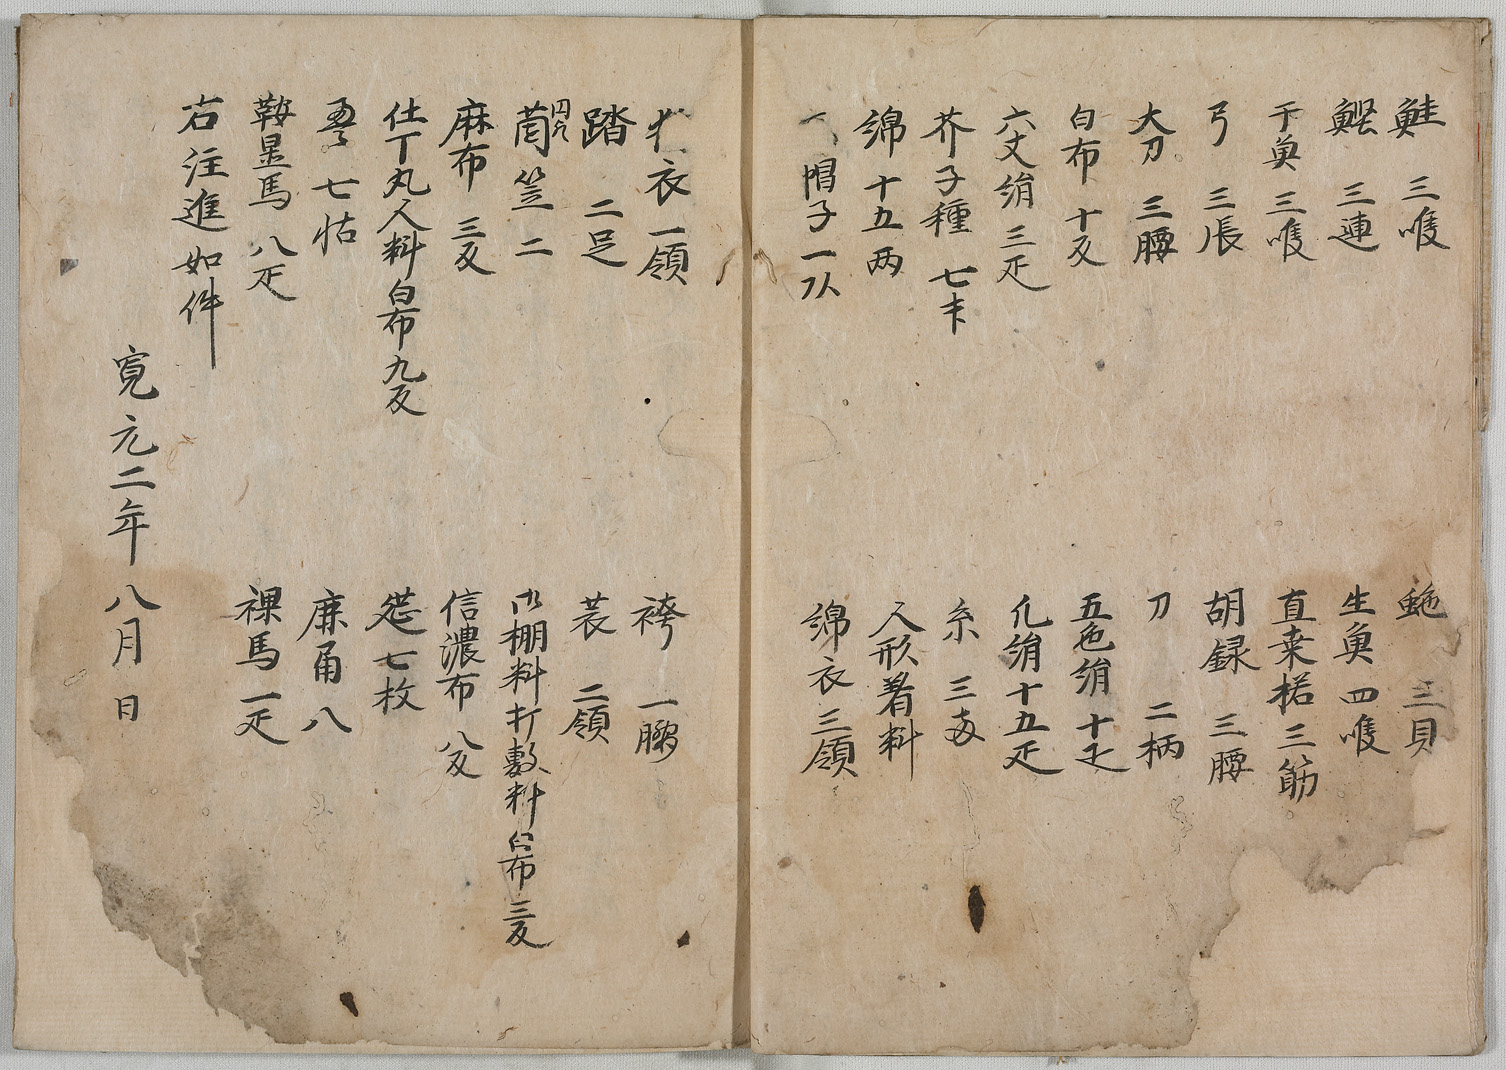 鮭 三喉
鮑 三貝
鰹 三連
生魚 四喉
干魚 三喉
直垂袴 三筋
弓 三張
胡録 三腰
大刀 三腰
刀 二柄
白布 十反
五色絹 十疋
六丈絹 三疋
凡絹 十五疋
芥子種 七
糸 三両
綿 十五両
人形着料
帽子 一
綿衣 三領
衣 一領
袴 一腰
踏 二足
裳 二領
藺笠 二
御棚料打敷料白布三反
麻布 三反
信濃布 八反
仕丁九人料 白布九反
莚 七枚
七帖
廉 八
鞍置馬 八疋
裸馬 一疋
右注進如件
寛元二年八月 日